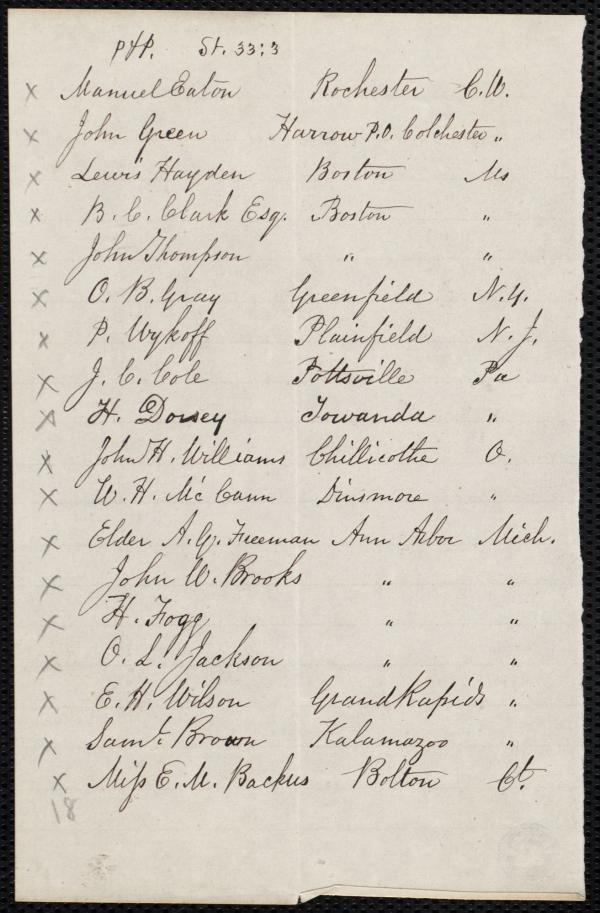 P&P. St. 33:3
x Manuel Eaton Rochester C.W.
x John Green Harrow P.O. Colchester "
x Lewis Hayden Boston Ms
x B. C. Clark Esq. Boston "
x John Thompson " "
x O. B. Gray Greenfield N.Y.
x P. Wykoff Plainfield N.J.
x J. C. Cole Pottsville Pa
x H. Dorsey Towanda "
x John H. Williams Chillicothe O.
x W. H. McCann Dinsmore "
x Elder A. G. Freeman Ann Arbor Mich.
x John W. Brooks " "
x H. Fogg " "
x O. L. Jackson " "
x E. H. Wilson Grand Rapids "
x Saml. Brown Kalamazoo "
x Miss E. M. Backus Bolton Ct.
18